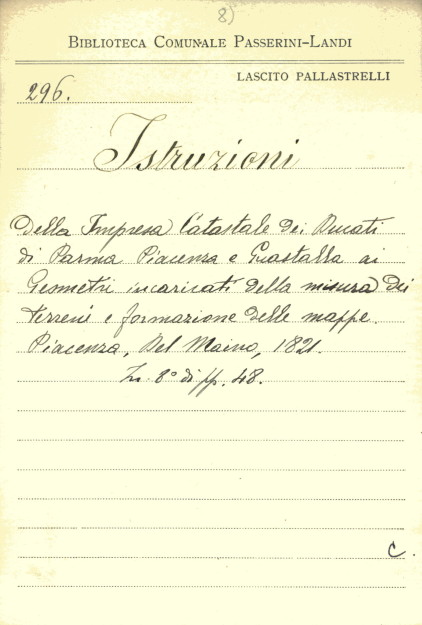 8)
BIBLIOTECA COMUNALE PASSERINI-LANDI
LASCITO PALLASTRELLI
296.
Istruzioni
Della Impresa Catastale dei Ducati
di Parma Piacenza e Guastalla ai
Geometri incaricati della misura dei
terreni e formazione delle mappe.
Piacenza, Del Maino, 1821.
In 8° di pp. 48.
C.